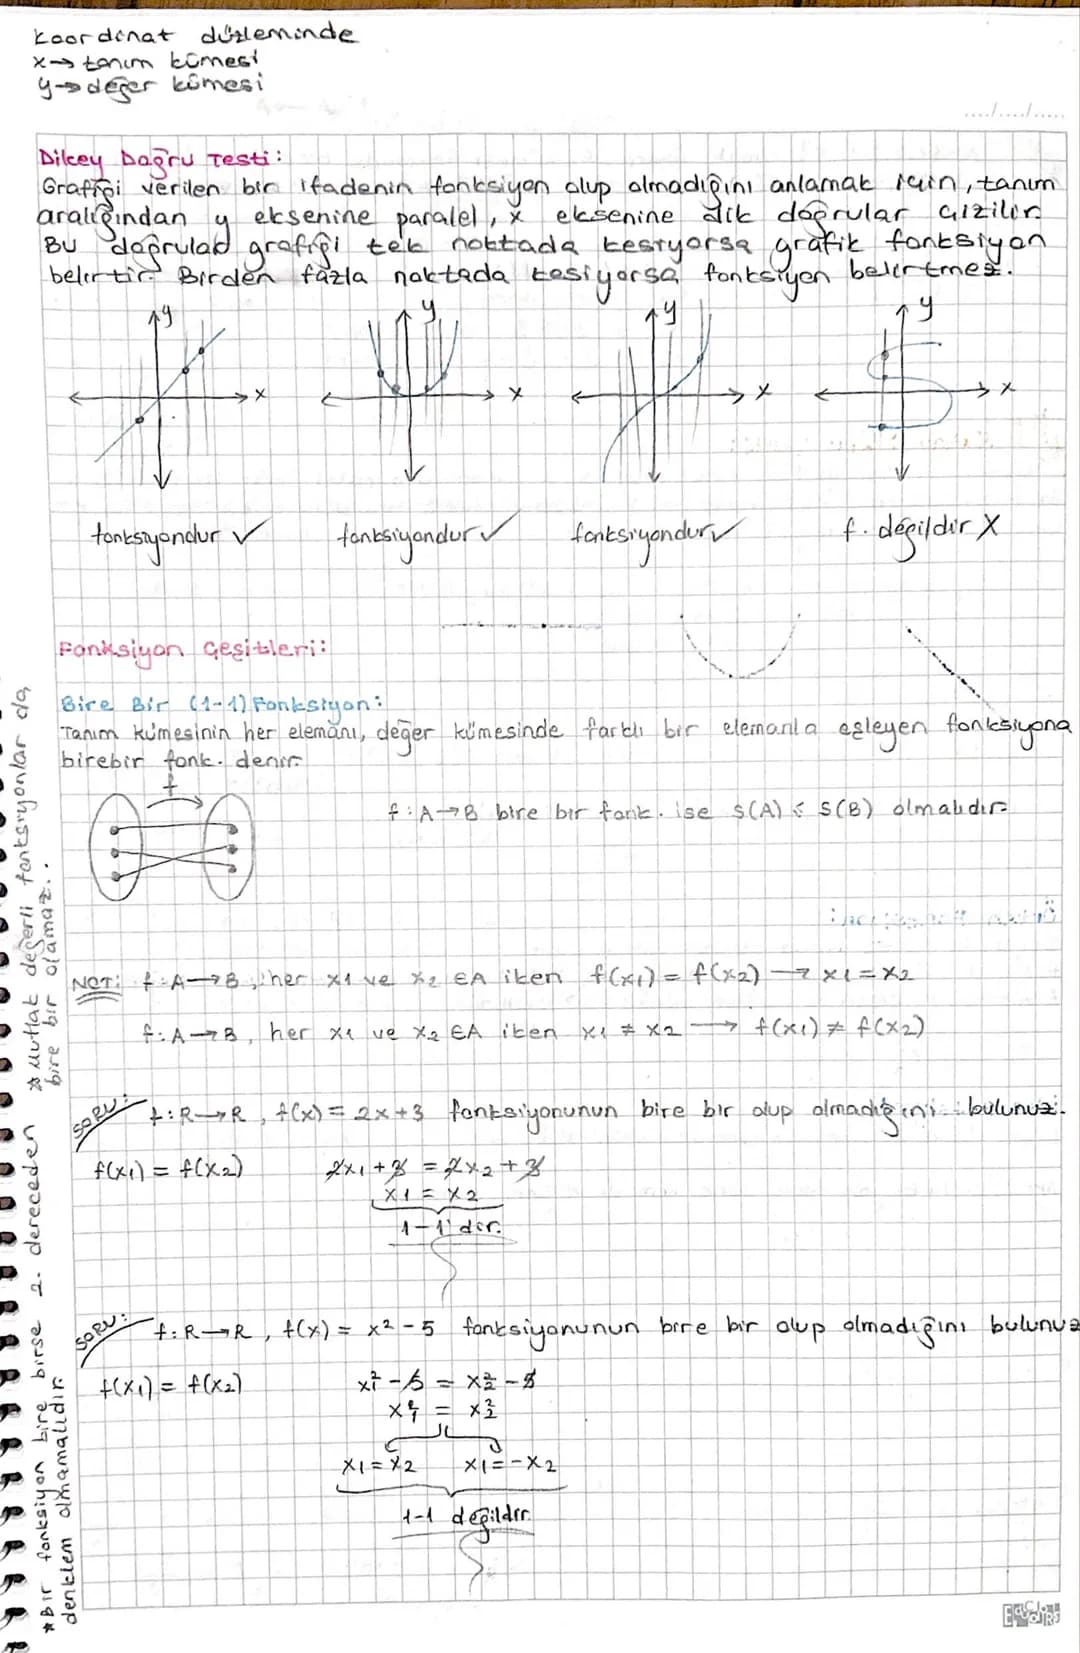 Koordinat düzleminde
x→ tanım kümesi
y→ değer kümesi
Dikey Doğru Testi:
Grafiği verilen bir ifadenin fonksiyon olup olmadığını anlamak için, tanım
aralığından y eksenine paralel, x eksenine dik doğrular çizilir.
Bu doğrular grafiği tek noktada kesiyorsa grafik fonksiyon
belirtir. Birden fazla noktada kesiyorsa fonksiyon belirtmez.
y y y y
x x x x
fonksiyondur ✓ fonksiyondur ✓ fonksiyondur ✓ f. değildir X
Fonksiyon Çeşitleri:
Bire Bir (1-1) Fonksiyon:
Tanım kümesinin her elemanı, değer kümesinde farklı bir elemanla eşleyen fonksiyona
birebir fonk. denir.
f
f: A→B bire bir fonk. ise s(A) ≤ s(B) olmalıdır.
NOT: f: A→B, her x1 ve x2 ∈A iken f(x1) = f(x2) → x1 = x2
f: A→B, her x1 ve x2 ∈A iken x1 ≠ x2 → f(x1) ≠ f(x2)
SORU: f: R→R, f(x) = 2x+3 fonksiyonunun bire bir olup olmadığını bulunuz.
f(x1) = f(x2) 2x1 + 3 = 2x2 + 3
x1 = x2
1-1' dir.
SORU: f: R→R, f(x) = x² - 5 fonksiyonunun bire bir olup olmadığını bulunuz
f(x1) = f(x2) x1² - 5 = x2² - 5
x1² = x2²
x1 = x2 x1 = -x2
1-1 değildir.
*Bir fonksiyon bire birse 2. dereceden
denklem olmamalıdır.
*Mutlak değerli fonksiyonlar da
bire bir olamaz..